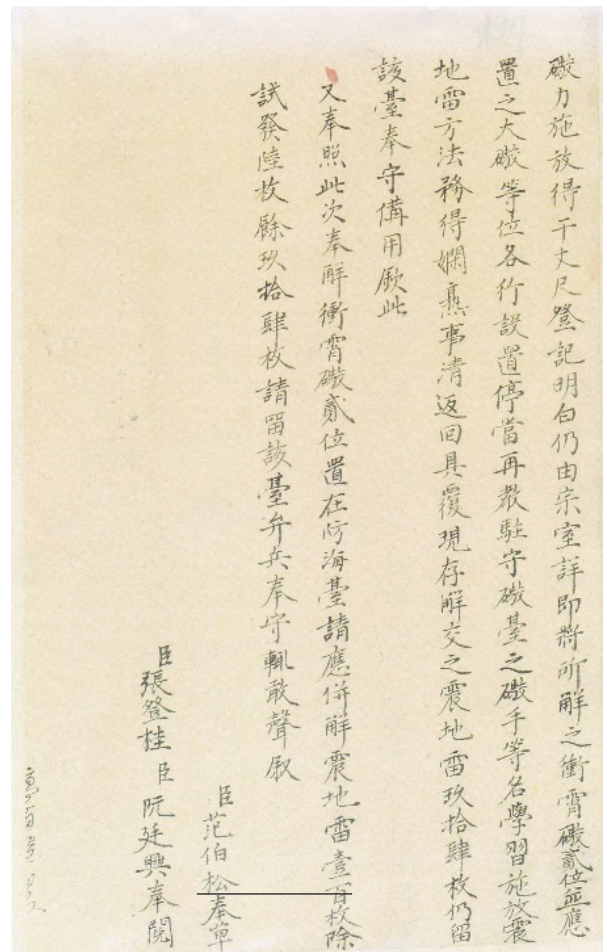 礮力施放得干丈尺登記明白仍由宗室詳即將所解之衝霄礮貳位並應
置之大礮等位各行設置停當再教駐守礮臺之礮手等名學習施放震
地雷方法務得嫻熟事清返回具覆現存解交之震地雷玖拾肆枚仍留
該臺奉守備用欽此
又奉照此次奉解衝霄礮貳位置在防海臺請應併解震地雷壹百枚除
試發陸枚餘玖拾肆枚請留該臺弁兵奉守輒敢聲敘
臣范伯松奉草
臣張登桂臣阮廷興奉閱